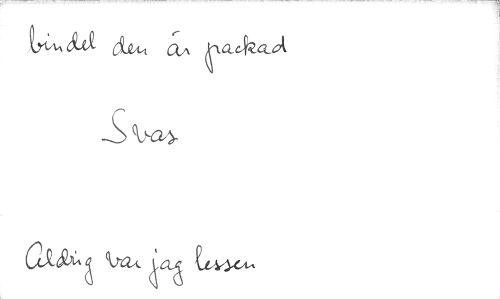 bindel den är packad
Svas
Aldrig var jag lessen